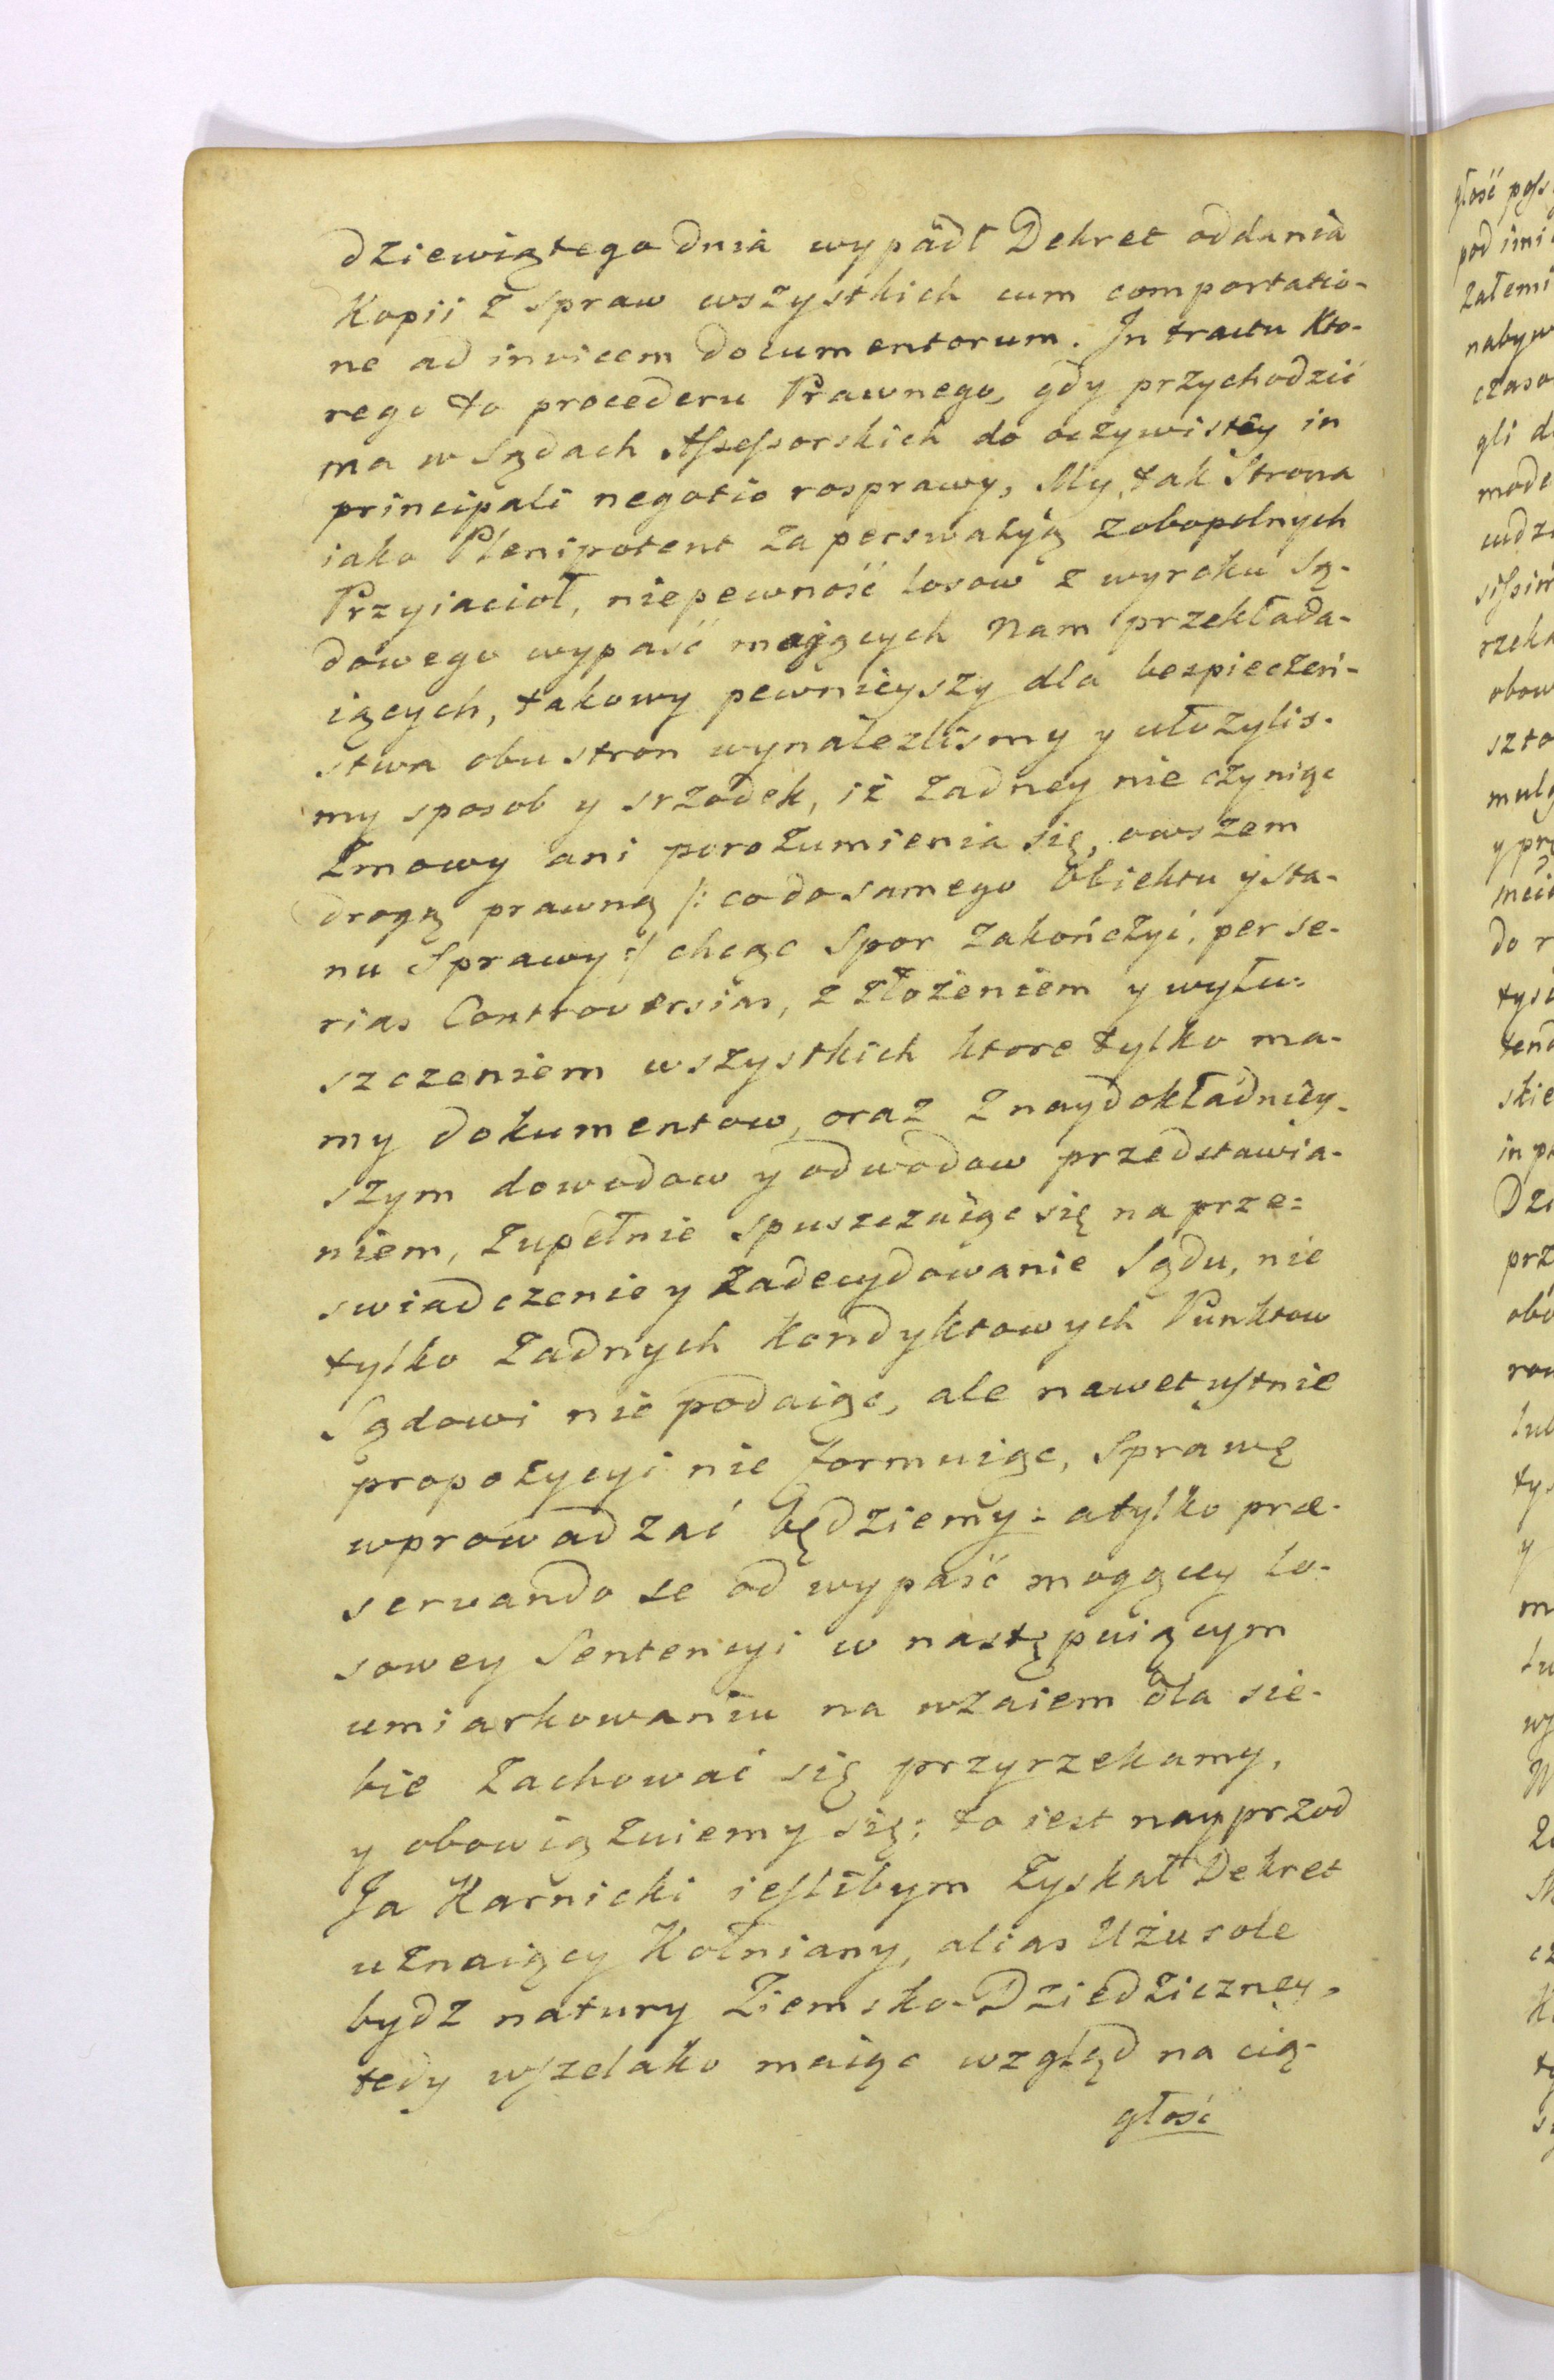 dziewiątego dnia wypadł Dekret oddania
Kopii z spraw wszystkich cum comportatio-
ne ad invicem documentorum. In tractu Kto-
rego to procederu Prawnego, gdy przychodzić
ma w Sądach Assessorskich do oczywistey in
principali negotio rosprawy, My, tak Strona
iako Plenipotent za perswazyą zobopolnych
Przyiacioł, niepewność losow z wyroku Są-
dowego wypaść maiących Nam przekłada-
iących, takowy pewnieyszy dla bespieczeń-
stwa obu stron wynalezlismy y ułożylis-
my sposob y srzodek, iż żadney nie czyniąc
Zmowy ani porozumienia się, owszem
drogą prawną /: co do samego Obiektu y sta-
nu Sprawy :/ chcąc Spor zakończyć, per se-
rias Controversias, z złożeniem y wyłu-
szczeniem wszystkich ktore tylko ma-
my dokumentow, oraz z naydokładniey-
szym dowodow y odwodow przedstawia-
niem, zupełnie spuszczaiąc się na prze-
swiadczenie y zadecydowanie Sądu, nie
tylko żadnych Kondyktowych Punktow
Sądowi nie podaiąc, ale nawet ustnie
propozycyi nie formuiąc, Sprawę
wprowadzać będziemy: a tylko præ-
servando se od wypaść mogącey lo-
sowey Sentencyi w następuiącym
umiarkowaniu na wzaiem dla sie-
bie zachować się przyrzekamy,
y obowiązuiemy się; to iest nayprzod
Ja Karnicki iesliбym zyskał Dekret
uznaiący Kołniany, alias Użusole
bydz natury Ziemsko-Dziedziczney,
tedy wszelako maiąc wzgląd na cią-
głość